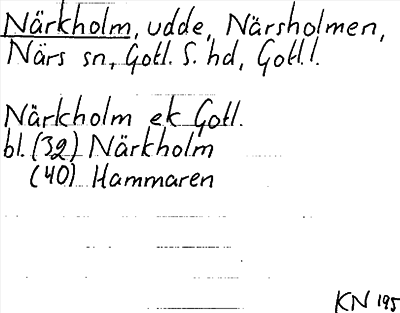 Närkholm, udde, Närsholmen,
Närs sn, Gotl. S. hd, Gotl. l.
Närkholm ek Gotl.
bl. (32) Närkholm
(40) Hammaren
KN 195